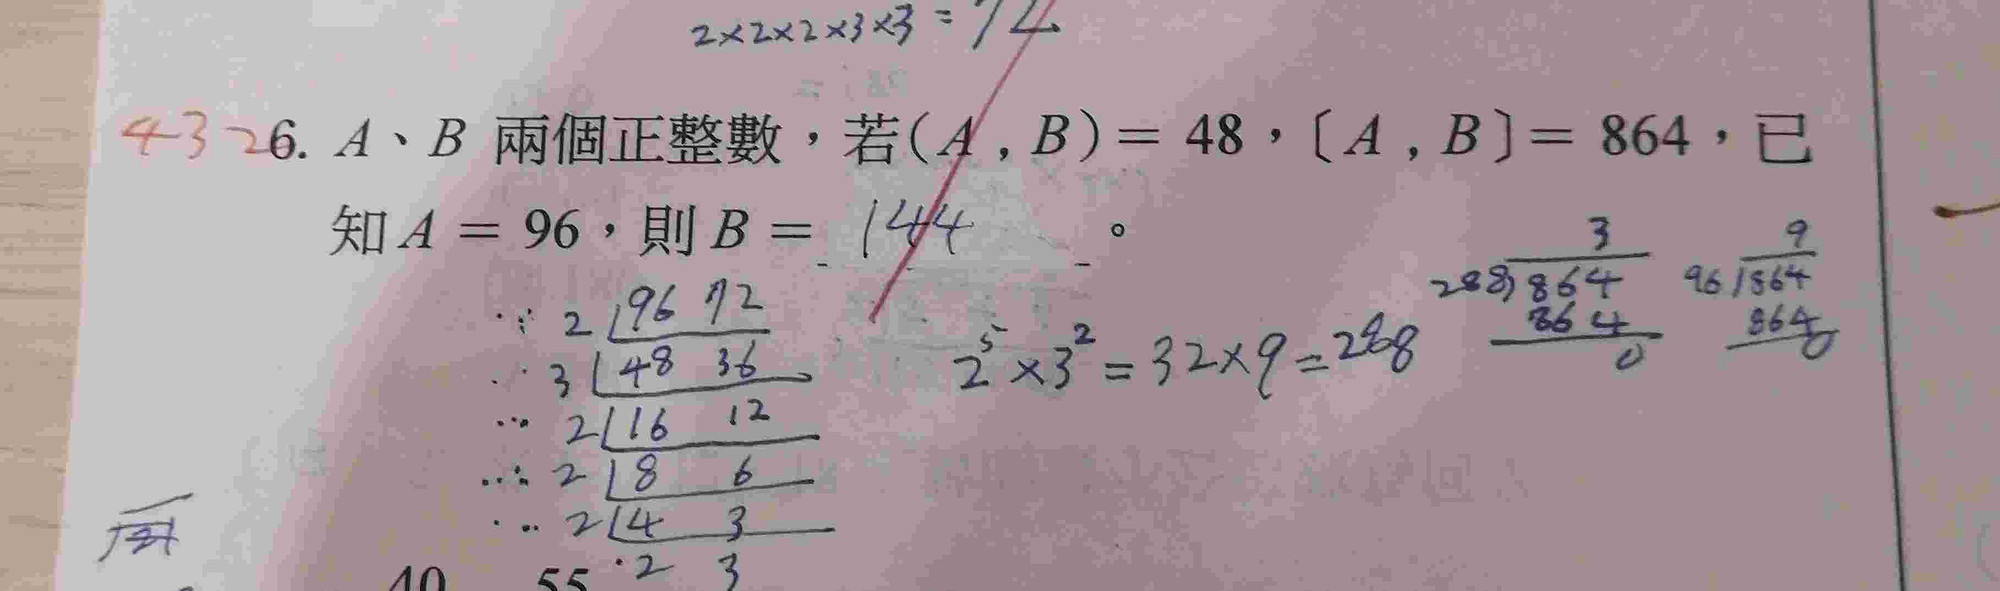 2×2×2×3×3=72
432
6. A、B 兩個正整數，若(A , B)＝48，〔A , B〕＝864，已
知 A ＝ 96，則 B ＝ 144 。
2 96 72
3 48 36
2 16 12
2 8 6
2 4 3
2 3
2⁵×3²=32×9=288
3
288)864
864
0
9
96)864
864
0
40 55